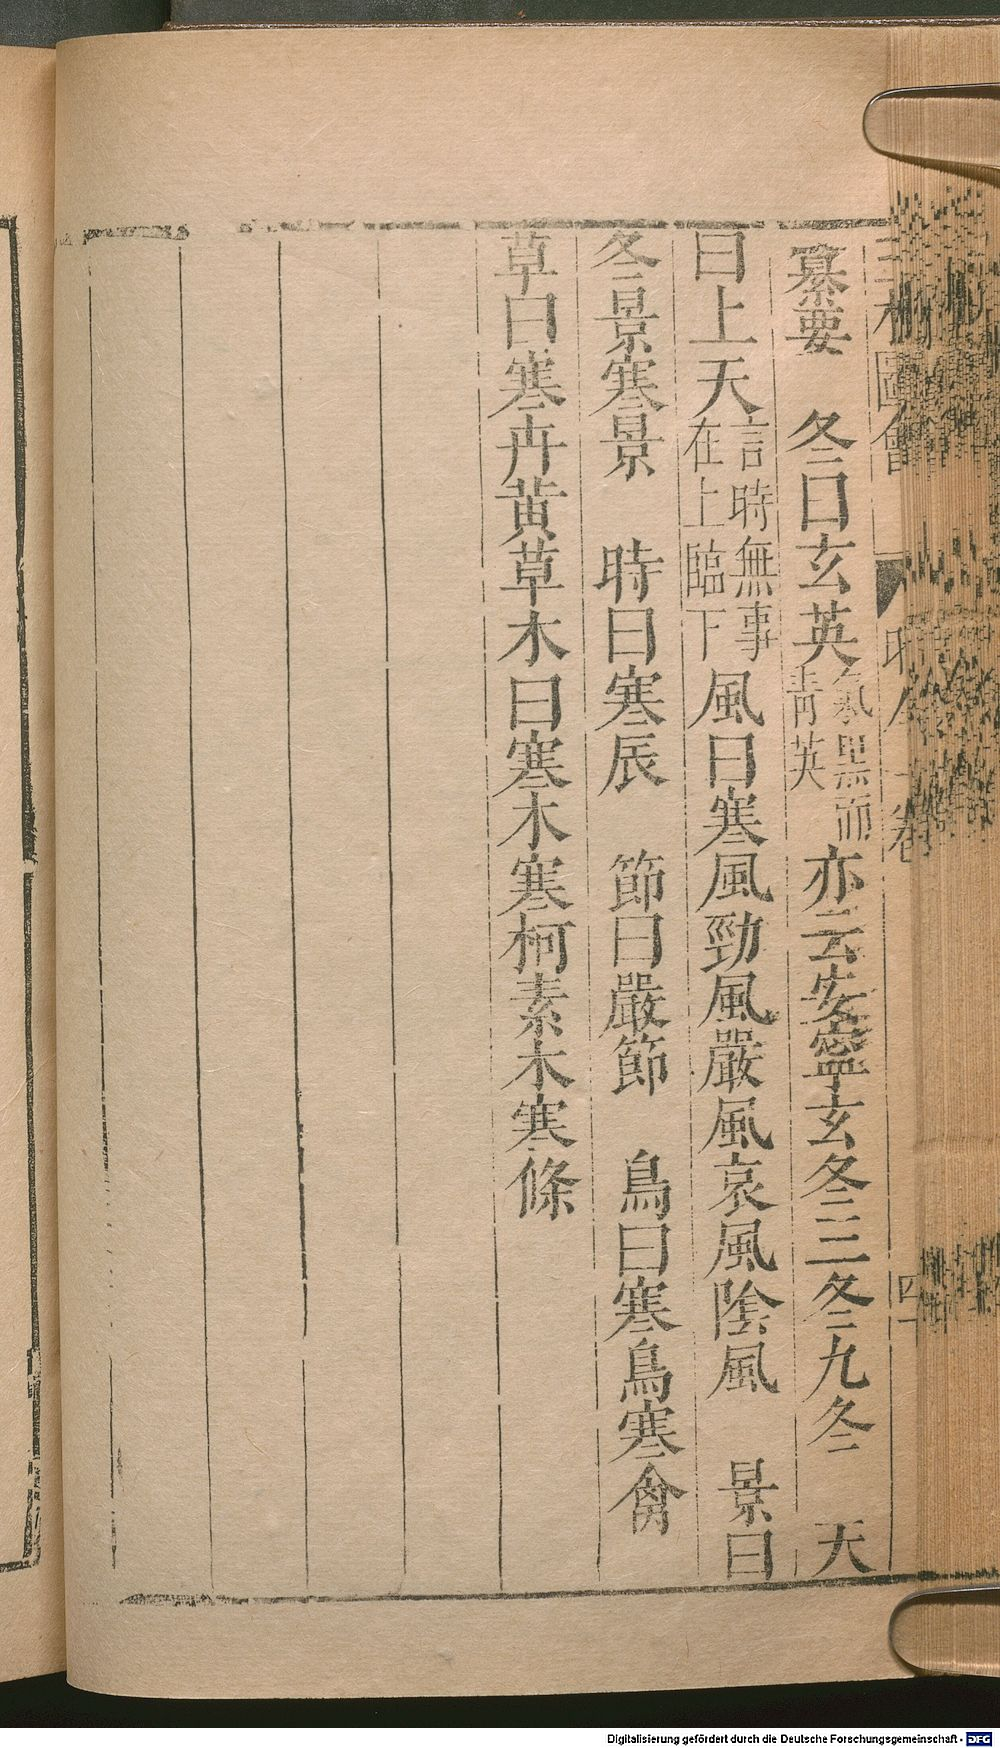 三才圖會 時令一卷 四
纂要 冬曰玄英氣黑而青英亦云安寧玄冬三冬九冬 天
曰上天言時無事在上臨下風曰寒風勁風嚴風哀風陰風 景曰
冬景寒景 時曰寒辰 節曰嚴節 鳥曰寒鳥寒禽
草曰寒卉黃草木曰寒木寒柯素木寒條
Digitalisierung gefördert durch die Deutsche Forschungsgemeinschaft - DFG